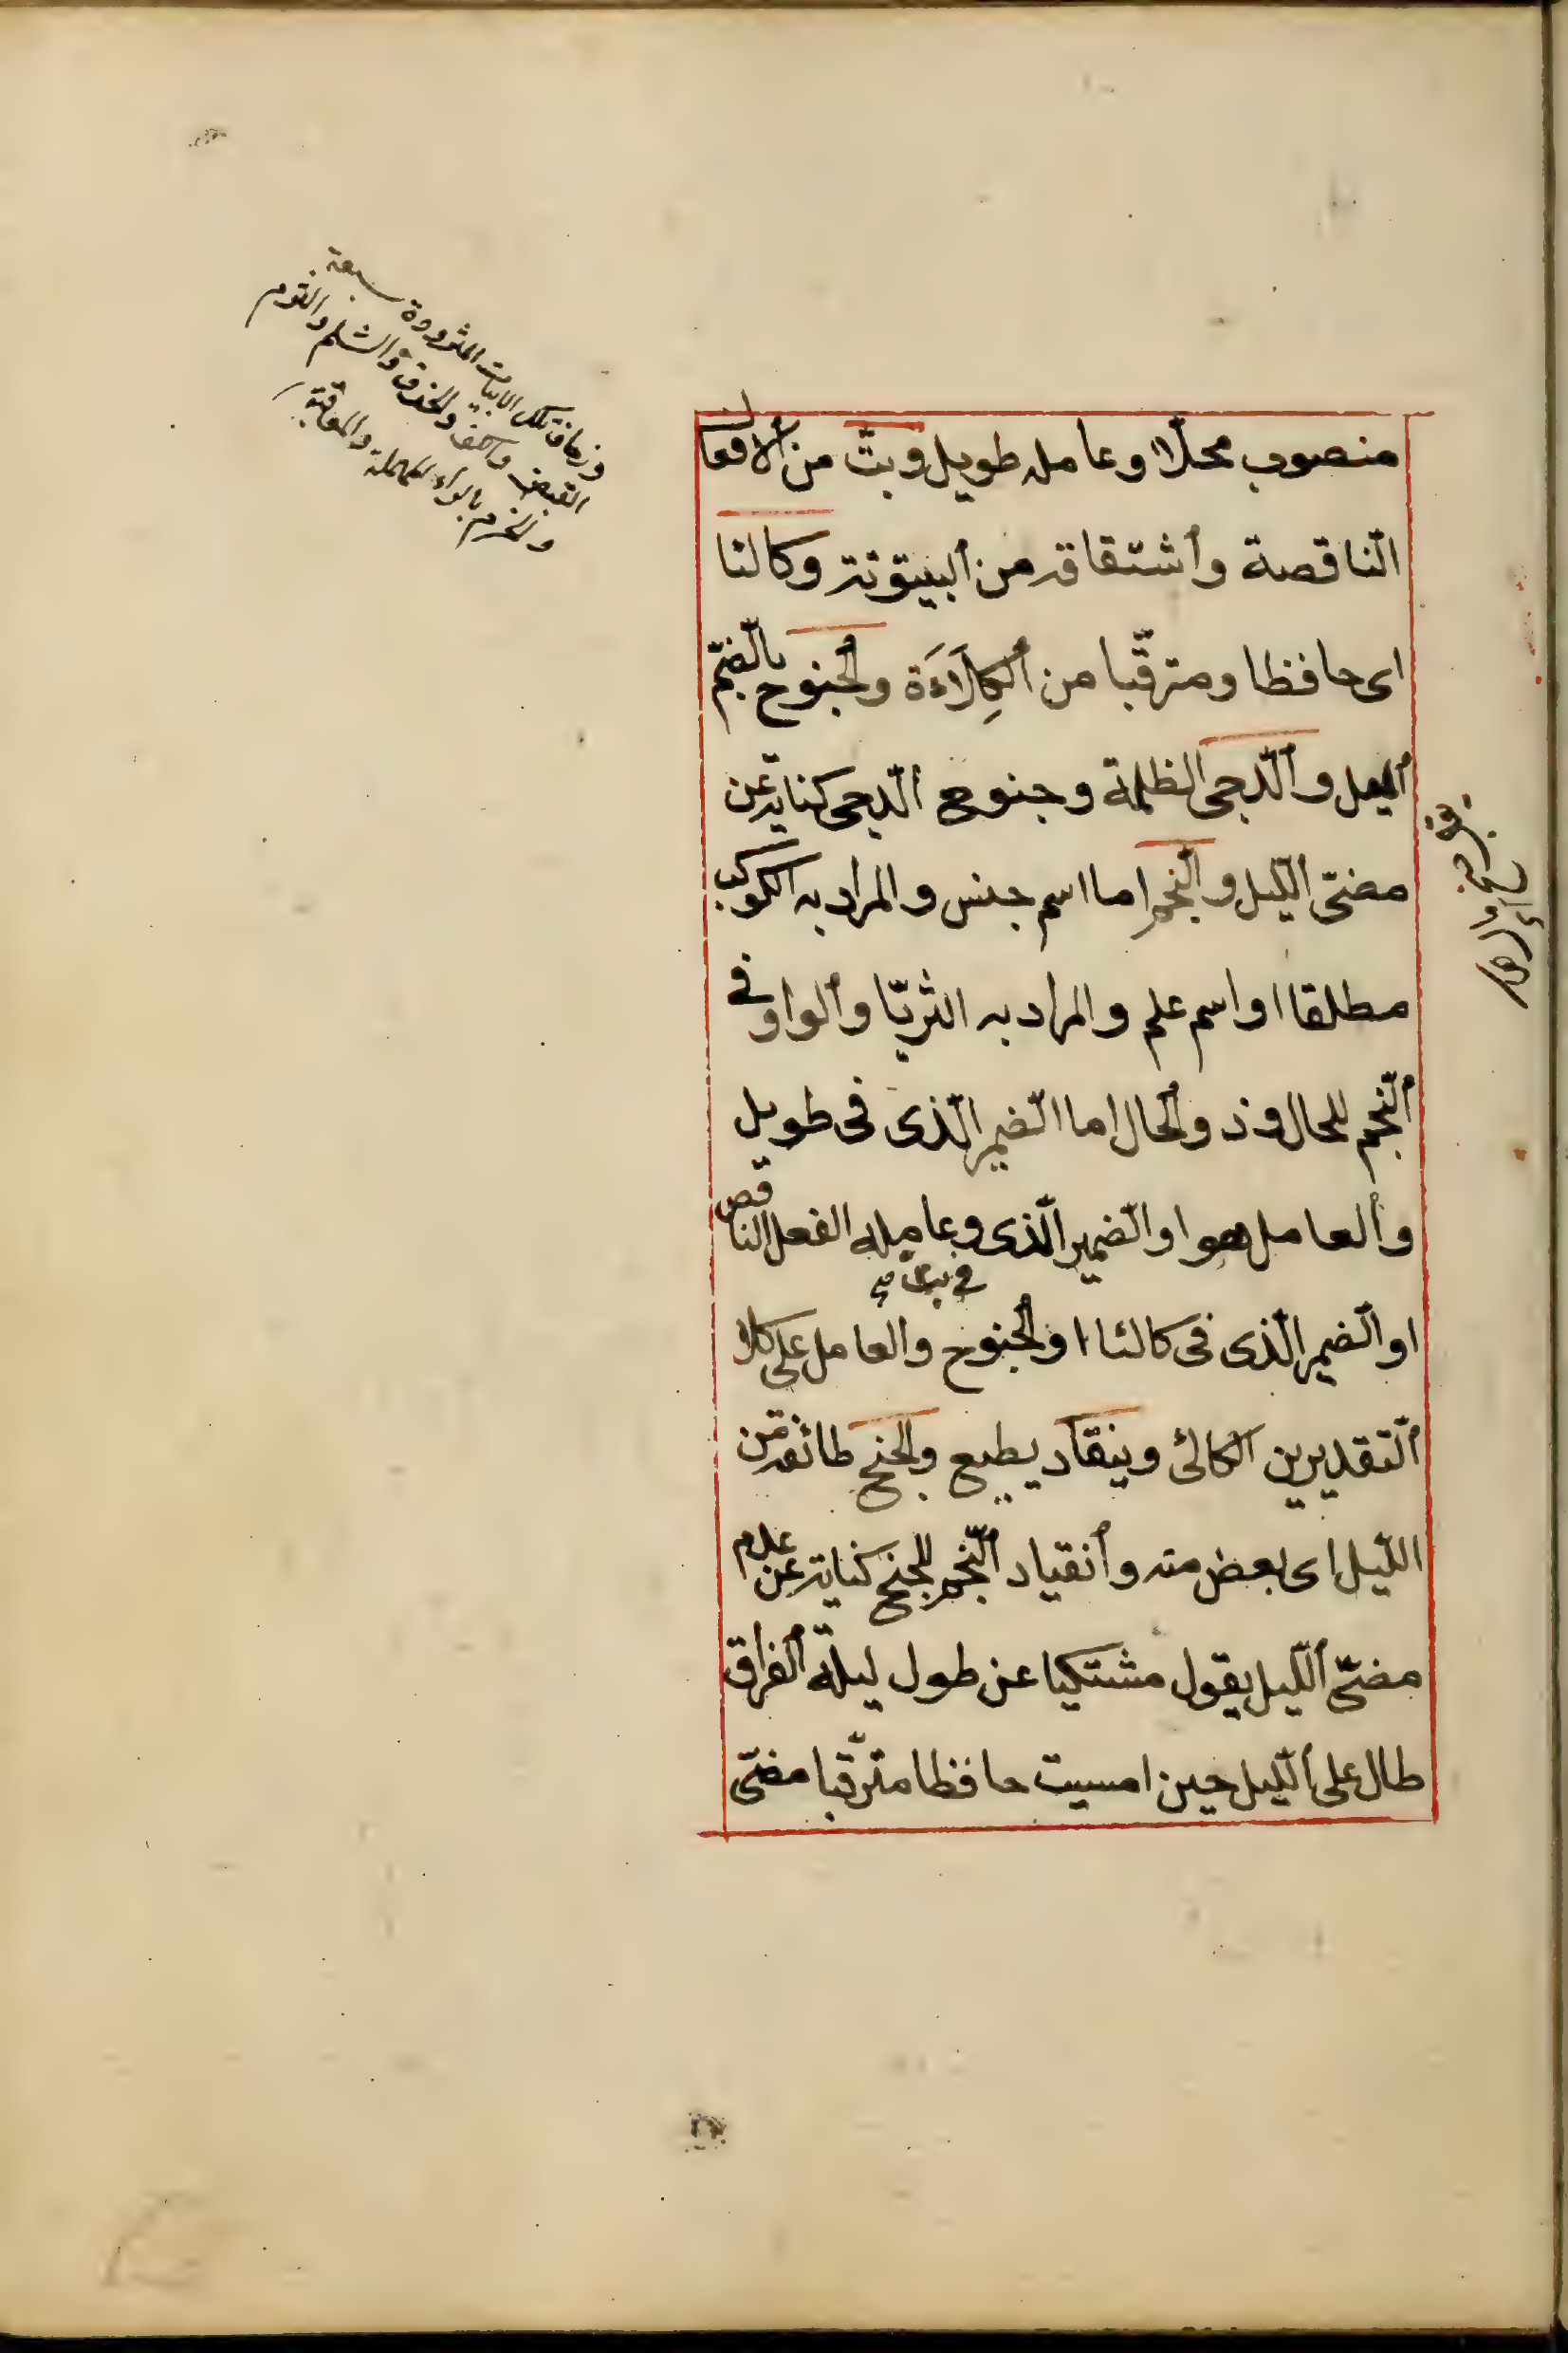 منصوب محلّا وعامله طويل وبتّ من ألأفعال
النّاقصة وأشتقاقه من ألبيتوتة وكالئا
اى حافظا ومترقّبا من ألكِلَاءَة وألجنوح بالضّم
ألميل وألدّجى الظلمة وجنوح ألدّجى كناية عن
مضىّ اللّيل وألنّجم اما اسم جنس والمراد به الكوكب
مطلقا او اسم علم والمراد به الثريّا وألواو فى
ألنّجم للحال وذو ألحال اما الضّمير الّذى فى طويل
وألعامل هو او الضّمير الّذى وعامله الفعل النّاقص
فى بتّ صح
او الضّمير الّذى فى كالئا او ألجنوح والعامل على كلا
ألتّقديرين الكالئ وينقاد يطيع وألجنح طائفة من
اللّيل اى بعض منه وأنقياد ألنّجم للجنح كناية عن عدم
مضىّ أللّيل يقول مشتكيا عن طول ليلة ألفراق
طال على أللّيل حين امسيت حافظا مترقّبا مضىّ
وزحاف تلك الابيات المثرودة سبعة
القبض والكف والحذف والثلم والثرم
والخرم بالراء المهملة والمعاقبة